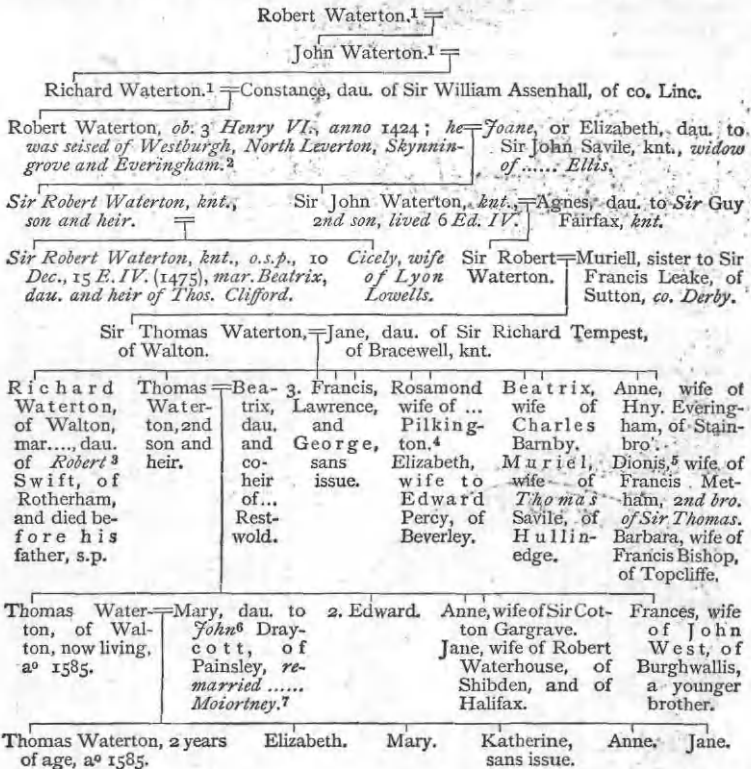 Robert Waterton.¹ =
John Waterton.¹ =
Richard Waterton.¹ = Constance, dau. of Sir William Assenhall, of co. Linc.
Robert Waterton, ob. 3 Henry VI., anno 1424 ; he
was seised of Westburgh, North Leverton, Skynnin-
grove and Everingham.²
= Joane, or Elizabeth, dau. to
Sir John Savile, knt., widow
of ...... Ellis.
Sir Robert Waterton, knt.,
son and heir.
=
Sir John Waterton, knt.,
2nd son, lived 6 Ed. IV.
= Agnes, dau. to Sir Guy
Fairfax, knt.
Sir Robert Waterton, knt., o.s.p., 10
Dec., 15 E. IV. (1475), mar. Beatrix,
dau. and heir of Thos. Clifford.
Cicely, wife
of Lyon
Lowells.
Sir Robert
Waterton.
= Muriell, sister to Sir
Francis Leake, of
Sutton, co. Derby.
Sir Thomas Waterton,
of Walton.
= Jane, dau. of Sir Richard Tempest,
of Bracewell, knt.
Richard
Waterton,
of Walton,
mar...., dau.
of Robert³
Swift, of
Rotherham,
and died be-
fore his
father, s.p.
Thomas
Water-
ton, 2nd
son and
heir.
= Bea-
trix,
dau.
and
co-
heir
of...
Rest-
wold.
3. Francis,
Lawrence,
and
George,
sans
issue.
Rosamond
wife of ...
Pilking-
ton.⁴
Elizabeth,
wife to
Edward
Percy, of
Beverley.
Beatrix,
wife of
Charles
Barnby.
Muriel,
wife of
Thomas
Savile, of
Hullin-
edge.
Anne, wife of
Hny. Evering-
ham, of Stain-
bro'.
Dionis,⁵ wife of
Francis Met-
ham, 2nd bro.
of Sir Thomas.
Barbara, wife of
Francis Bishop,
of Topcliffe.
Thomas Water-
ton, of Wal-
ton, now living,
aº 1585.
= Mary, dau. to
John⁶ Dray-
cott, of
Painsley, re-
married ......
Moiortney.⁷
2. Edward.
Anne, wife of Sir Cot-
ton Gargrave.
Jane, wife of Robert
Waterhouse, of
Shibden, and of
Halifax.
Frances, wife
of John
West, of
Burghwallis,
a younger
brother.
Thomas Waterton, 2 years
of age, aº 1585.
Elizabeth.
Mary.
Katherine,
sans issue.
Anne.
Jane.